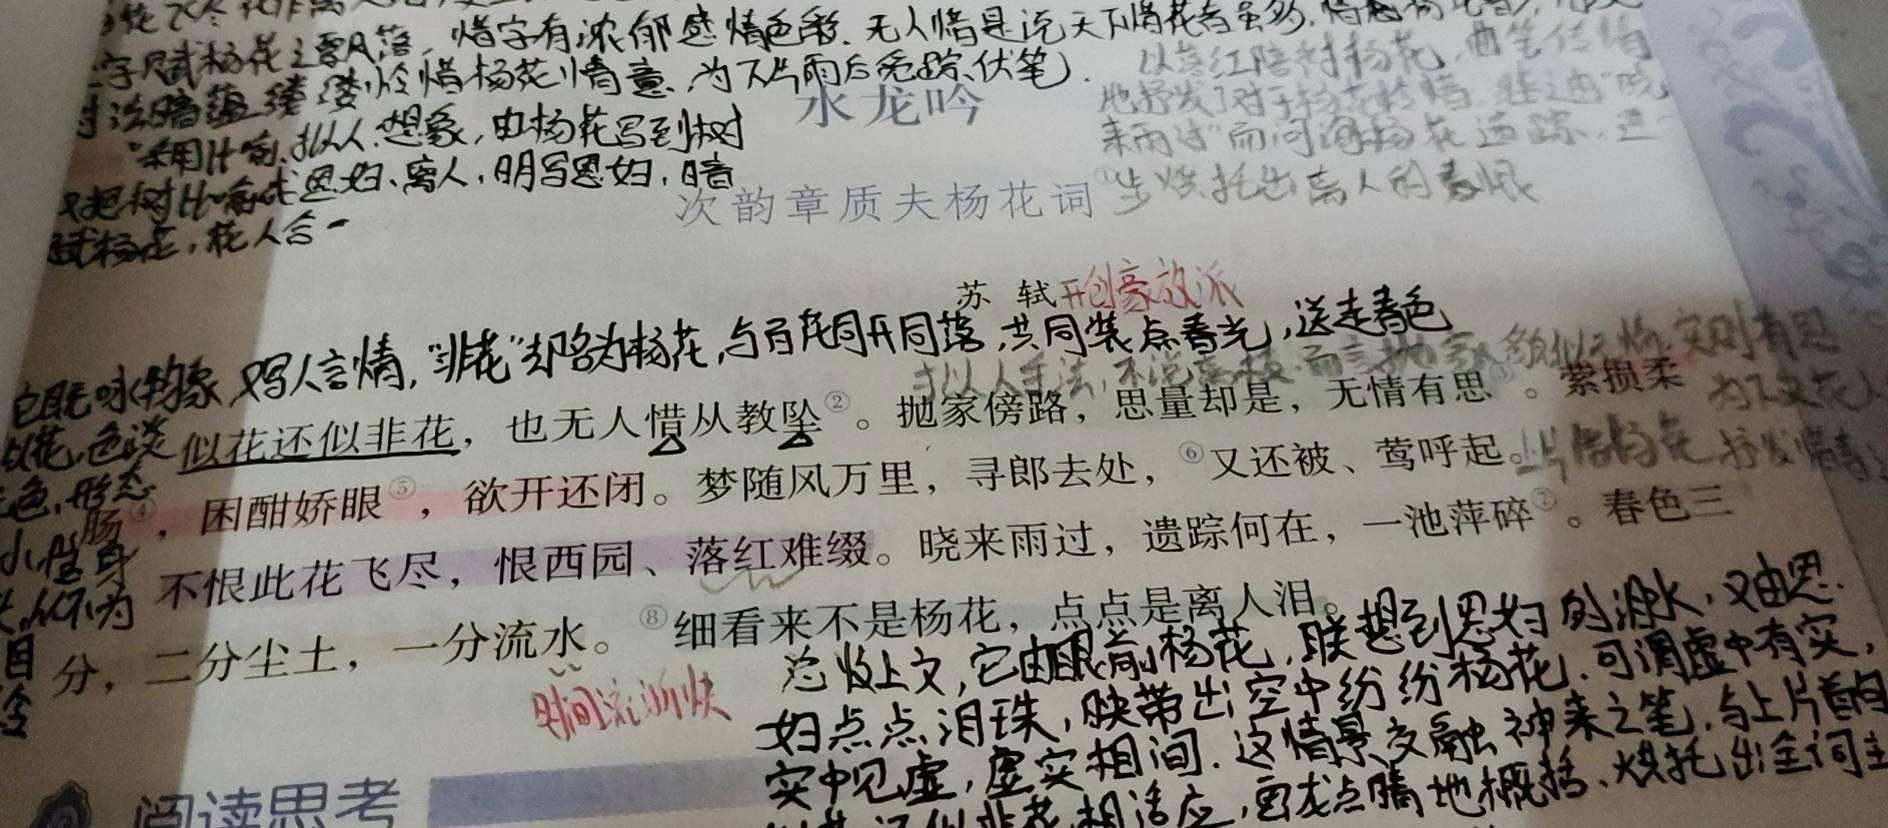 惜字有浓郁感情色彩.无人惜是说天下惜花者虽多,
字赋杨花之飘落,
怜惜杨花情意,为下片雨后觅踪伏笔).
以落红陪衬杨花,曲笔传情
地抒发了对于杨花的怜惜.继之由"晓
来雨过"而问询杨花遗踪,进一
步烘托出离人的春恨
采用比喻、拟人、想象,由杨花写到树
又把树比喻成思妇、离人,明写思妇,暗
赋杨花,花人合一
水龙吟
次韵章质夫杨花词①
苏 轼 开创豪放派
它既咏物象,又写人言情,"非花"却名为杨花,与百花同开同落,共同装点春光,送走春色
拟人手法,不说离枝,而言抛家,貌似无情,实则有思
似花还似非花,也无人惜从教坠②。抛家傍路,思量却是,无情有思③。萦损柔
肠④,困酣娇眼⑤,欲开还闭。梦随风万里,寻郎去处,⑥又还被、莺呼起。
上片惜杨花,抒发情
不恨此花飞尽,恨西园、落红难缀。晓来雨过,遗踪何在,一池萍碎⑦。春色三
分,二分尘土,一分流水。⑧细看来不是杨花,点点是离人泪。
似花,色淡
小,隐身
时间流逝快
总收上文,它由眼前杨花,联想到思妇的泪水,又由思
妇点点泪珠,映带出空中纷纷杨花,可谓虚中有实,
实中见虚,虚实相间.这情景交融神来之笔,与上片首句
似花还似非花相适应,画龙点睛地概括、烘托出全词主
阅读思考